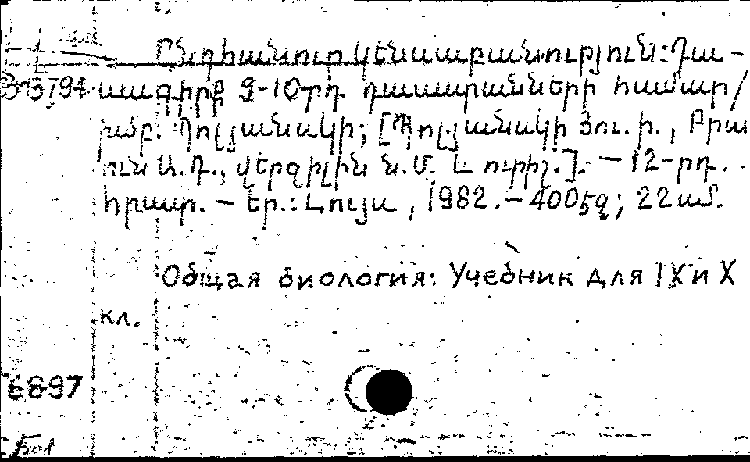 Ընդհանուր կենսաբանություն: Դա-
սագիրք 9-10-րդ դասարանների համար/
խմբ. Պոլյանսկի; [Պոլյանսկի Յու. ի., Բրա
ուն Ա.Դ., Վերզիլին Ն.Մ. և ուրիշ.]. — 12-րդ.
հրատ. — Եր.: Լույս, 1982. — 400 էջ; 22 սմ.
Общая биология: Учебник для IX и X
кл.
6897